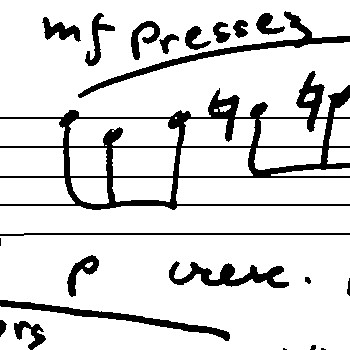 mf Pressez
p cresc.
ors